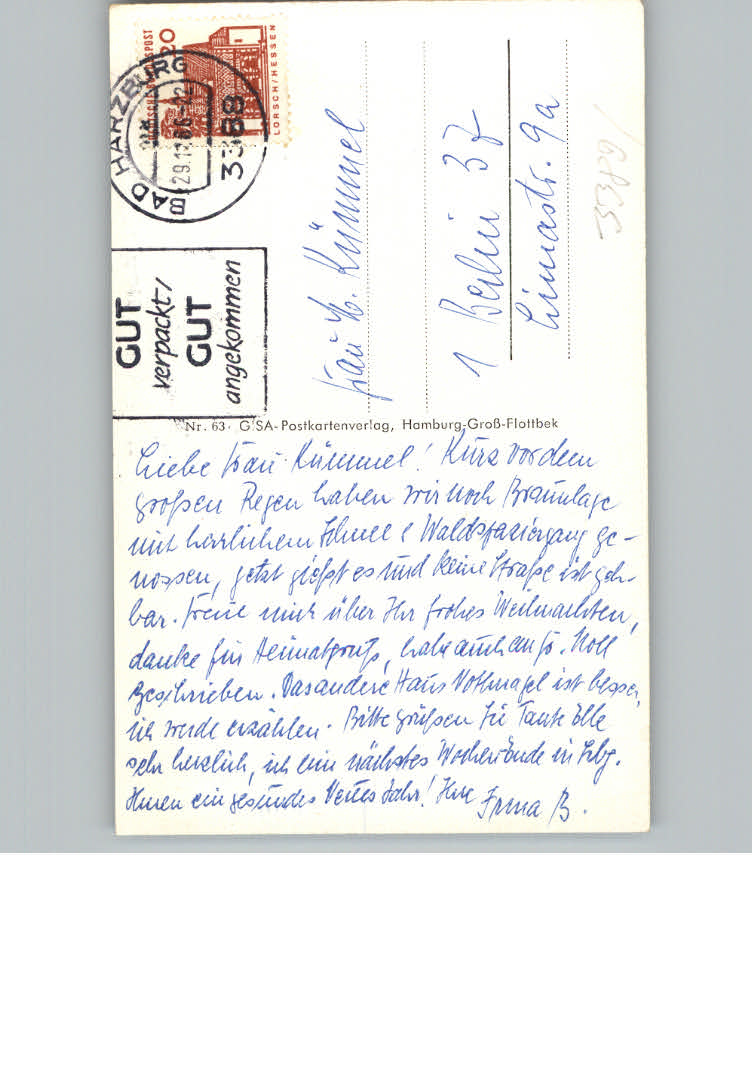 DEUTSCHE BUNDESPOST
20
LORSCH/HESSEN
BAD HARZBURG
29.12.66
3388
GUT
verpackt/
GUT
angekommen
Frau H. Kümmel
1 Berlin 37
Limastr. 9a
3389/
Nr. 63 GISA-Postkartenverlag, Hamburg-Groß-Flottbek
Liebe Frau Kümmel! Kurz vor dem
großen Regen haben wir noch Braunlage
mit herrlichem Schnee & Waldspaziergang ge-
nossen, jetzt gießt es und keine Straße ist geh-
bar. Freue mich über Ihr frohes Weihnachten,
danke für Heimatgruß, habe auch an Noll
geschrieben. Das andere Haus Vothnagel ist besser,
ich werde erzählen. Bitte grüßen Sie Tante Elle
sehr herzlich, ich bin nächstes Wochenende in Hbg.
Ihnen ein gesundes Neues Jahr! Ihre Irma B.